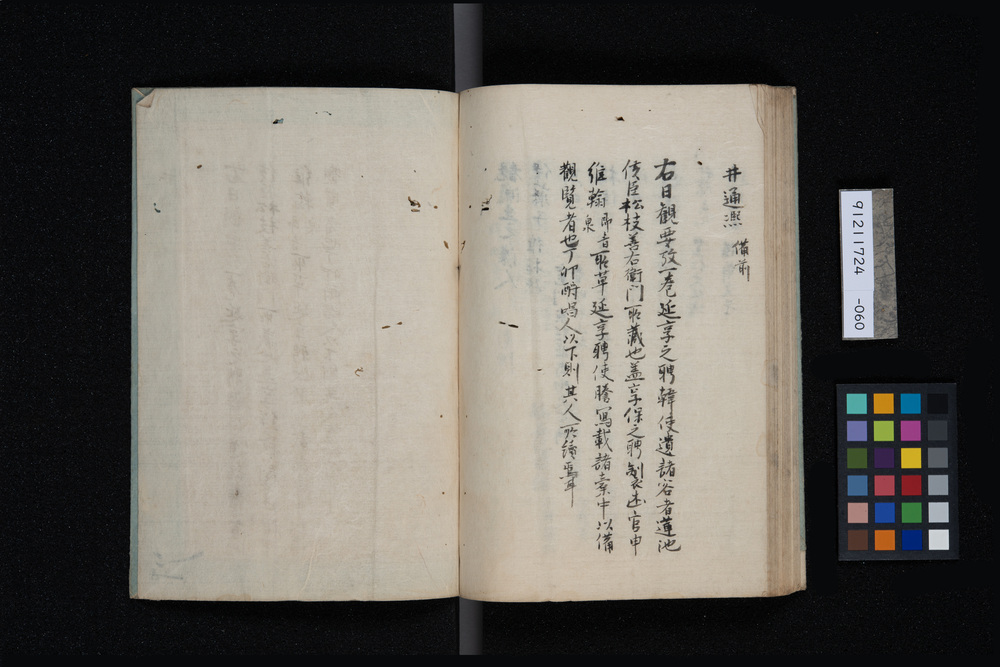 井通熈 備前
右日観要攷一巻延享之聘韓使遺諸谷者蓮池
侯臣松枝善右衛门所蔵也盖享保之聘製述官申
維翰 青泉 所草延享聘使謄寫載諸橐中以備
觀覧者也丁卯酧唱人以下則其人所續耳
91211724 -060